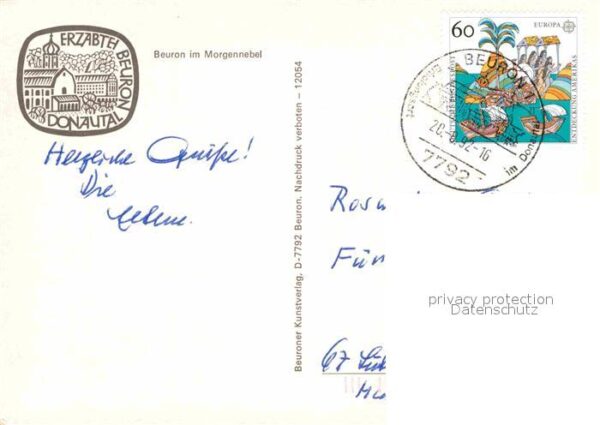 ERZABTEI BEURON
DONAUTAL
Beuron im Morgennebel
Herzliche Grüße!
Die
Beuroner Kunstverlag, D-7792 Beuron. Nachdruck verboten – 12054
60
EUROPA
DEUTSCHE BUNDESPOST
ENTDECKUNG AMERIKAS
BEURON 1
20.-8.92-16
im Donautal
7792
Rosa
Fün
privacy protection
Datenschutz
67